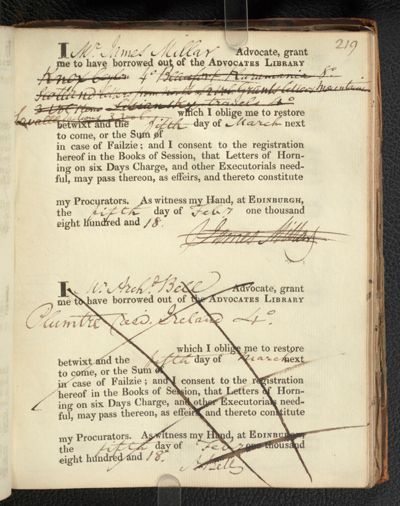 219
I Mr. James Millar Advocate, grant
me to have borrowed out of the ADVOCATES LIBRARY
4o
Scotland Grants
Travels 4o
which I oblige me to restore
betwixt and the fifth day of March next
to come, or the Sum of
in case of Failzie; and I consent to the registration
hereof in the Books of Session, that Letters of Horn-
ing on six Days Charge, and other Executorials need-
ful, may pass thereon, as effeirs, and thereto constitute
my Procurators. As witness my Hand, at EDINBURGH,
the fifth day of Feby one thousand
eight hundred and 18.
James Millar
I Mr. Archd. Bell Advocate, grant
me to have borrowed out of the ADVOCATES LIBRARY
Plumtre Ireland 4o.
which I oblige me to restore
betwixt and the fifth day of March next
to come, or the Sum of
in case of Failzie; and I consent to the registration
hereof in the Books of Session, that Letters of Horn-
ing on six Days Charge, and other Executorials need-
ful, may pass thereon, as effeirs, and thereto constitute
my Procurators. As witness my Hand, at EDINBURGH,
the fifth day of Feby one thousand
eight hundred and 18.
A Bell